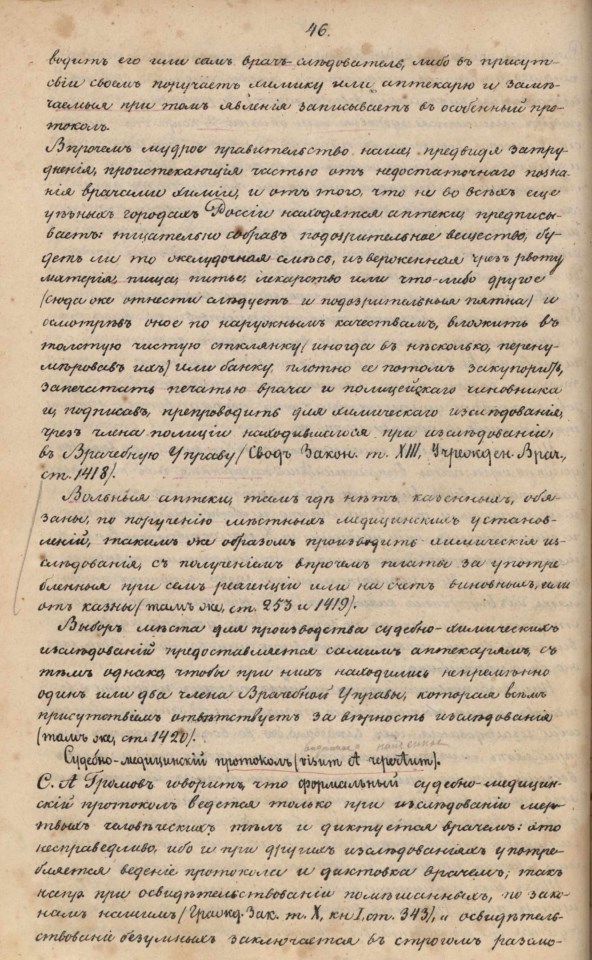 46.
водитъ его или самъ врачъ-слѣдователь, либо въ присут-
ствіи своемъ поручаетъ химику или аптекарю и замѣ-
чаемыя при томъ явленія записываетъ въ особенный про-
токолъ.
Впрочемъ мудрое правительство наше, предвидя затру-
дненія, проистекающія частью отъ недостаточнаго позна-
нія врачами химіи, и отъ того, что не во всѣхъ еще
уѣздныхъ городахъ Россіи находятся аптеки, предписы-
ваетъ: тщательно собравъ подозрительное вещество, бу-
детъ ли то желудочная слизь, изверженная чрезъ рвоту
матерія, пища, питье, лекарство или что-либо другое
/сюда же отнести слѣдуетъ и подозрительныя пятна/ и
осмотрѣвъ оное по наружнымъ качествамъ, вложить въ
толстую чистую стклянку /иногда въ нѣсколько, перену-
мѣровавъ ихъ/ или банку, плотно ее потомъ закупорить,
запечатать печатью врача и полицейскаго чиновника
и, подписавъ, препроводить для химическаго изслѣдованія,
чрезъ члена полиціи находившагося при изслѣдованіи,
въ Врачебную Управу /Сводъ Закон. т. XIII, Учрежден. Врач.,
ст. 1418/.
Вольныя аптеки, тамъ гдѣ нѣтъ казенныхъ, обя-
заны, по порученію мѣстныхъ медицинскихъ установ-
леній, такимъ же образомъ производить химическія из-
слѣдованія, съ полученіемъ впрочемъ платы за употре-
бленныя при семъ реагенціи или на счетъ виновныхъ, или
отъ казны /тамъ же, ст. 253 и 1419/.
Выборъ мѣста для производства судебно-химическихъ
изслѣдованій предоставляется самимъ аптекарямъ, съ
тѣмъ однако, чтобы при нихъ находились непремѣнно
одинъ или два члена Врачебной Управы, которая всѣмъ
присутствіемъ отвѣтствуетъ за вѣрность изслѣдованія
/тамъ же, ст. 1420/.
Судебно-медицинскій протоколъ (visum et repertum).
С. А. Громовъ говоритъ, что формальный судебно-медицин-
скій протоколъ ведется только при изслѣдованіи мер-
твыхъ человѣческихъ тѣлъ и диктуется врачемъ: это
несправедливо, ибо и при другихъ изслѣдованіяхъ употре-
бляется веденіе протокола и диктовка врачемъ; такъ
напр. при освидѣтельствованіи помѣшанныхъ, по зако-
намъ нашимъ /Гражд. Зак. т. X, кн I, ст. 343/, „освидѣтель-
ствованіе безумныхъ заключается въ строгомъ разсмо-